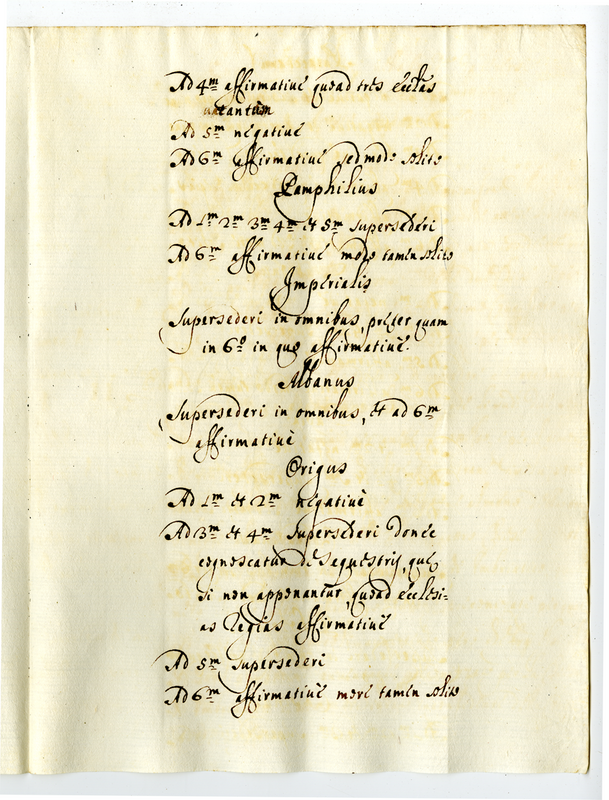 Ad 4m affirmative quoad tres Eccłas
vacantes
Ad 5m negative
Ad 6m affirmative sed modo solito
Pamphilius
Ad 1m 2m 3m 4m et 5m supersederi
Ad 6m affirmative modo tamen solito
Imperialis
Supersederi in omnibus, præter quam
in 6o in quo affirmative.
Albanus
Supersederi in omnibus, et ad 6m
affirmative
Origus
Ad 1m et 2m negative
Ad 3m et 4m supersederi donec
cognoscatur de sequestrij, quæ
si non apponantur, quoad Ecclesi-
as Regias affirmative
Ad 5m supersederi
Ad 6m affirmative more tamen solito